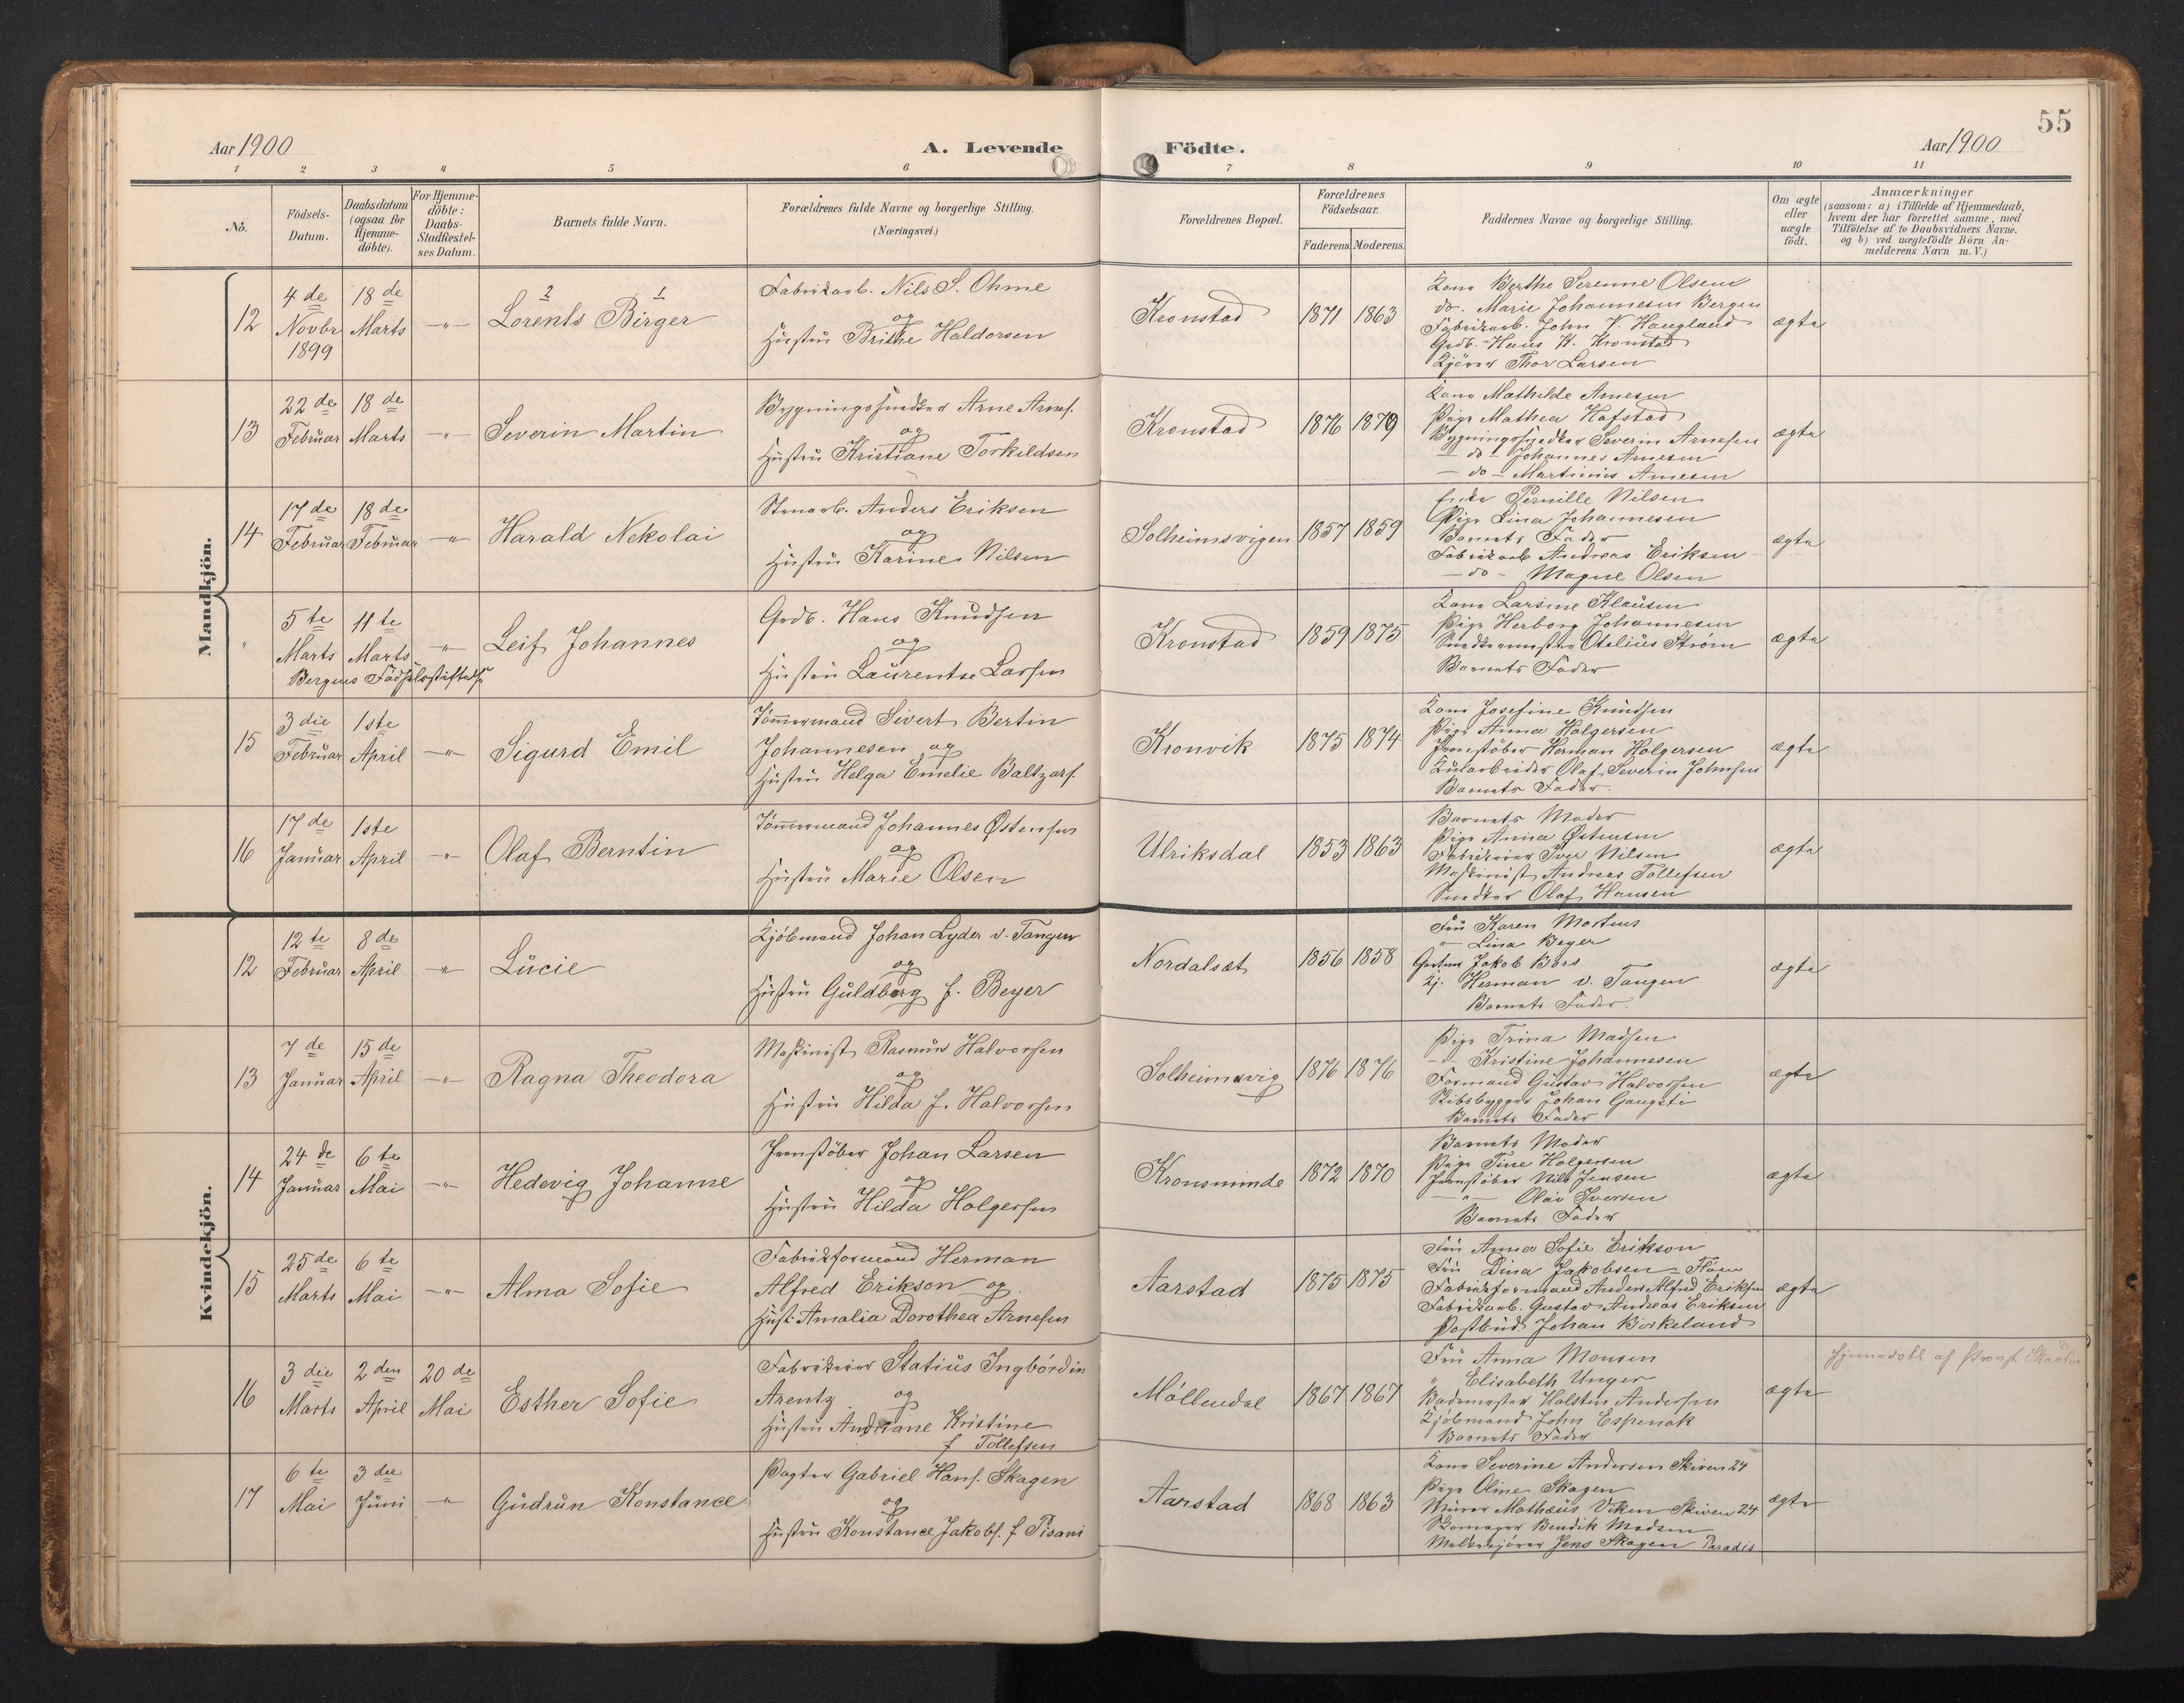 55
Aar 1900
A. Levende
Födte.
Aar 1900
1 2 3 4 5 6 7 8 9 10 11
No.
Födsels-
Datum.
Daabsdatum
(ogsaa for
Hjemme-
döbte).
For Hjemme-
döbte:
Daabs-
Stadfæstel-
ses Datum.
Barnets fulde Navn.
Forældrenes fulde Navne og borgerlige Stilling.
(Næringsvei.)
Forældrenes Bopæl.
Forældrenes
Födselsaar.
Faderens. Moderens.
Faddernes Navne og borgerlige Stilling.
Om ægte
eller
uægte
födt.
Anmærkninger
(saasom: a) i Tilfælde af Hjemmedaab,
hvem der har forrettet samme, med
Tilföielse af to Daabsvidners Navne.
og b) ved uægtefödte Börn An-
melderens Navn m.V.)
Mandkjön.
12
4de
Novbr
1899
18de
Marts
-"-
2 1
Lorents Birger
Fabrikarb. Nils S. Ohme
og
Hustru Brithe Haldorsen
Kronstad
1871 1863
Kone Berthe Serenne Olsen
do. Marie Johannesen Bergen
Fabrikarb. John V. Haugland
Grdb. Hans K. Kronstad
Kjörer Thor Larsen
ægte
13
22de
Februar
18de
Marts
-"-
Severin Martin
Bygningssnedker Arne Arnes.
og
Hustru Kristiane Torkildsen
Kronstad
1876 1879
Kone Mathilde Arnesen
Pige Mathea Hofstad
Bygningssnedker Severin Arnesen
- do - Johannes Arnesen
- do - Martinius Arnesen
ægte
14
17de
Februar
18de
Februar
-"-
Harald Nekolai
Stenarb. Anders Eriksen
og
Hustru Karine Nilsen
Solheimsvigen
1857 1859
Enke Pernille Nilsen
Pige Lina Johannesen
Barnets Fader
Fabrikarb Andreas Eriksen
- do - Magne Olsen
ægte
"
5te
Marts
11te
Marts
-"-
Bergens Födselsstiftelse
Leif Johannes
Grdb. Hans Knudsen
og
Hustru Laurentse Larsen
Kronstad
1859 1875
Kone Larsine Klausen
Pige Herborg Johannesen
Snedkermester Otelius Strøm
Barnets Fader
ægte
15
3die
Februar
1ste
April
-"-
Sigurd Emil
Tömmermand Sivert Bertin
Johannesen og
Hustru Helga Emelie Baltzars.
Kronvik
1875 1874
Kone Josefine Knudsen
Pige Anna Holgersen
Jernstöber Herman Holgersen
Kularbeider Olaf Severin Johnsen
Barnets Fader.
ægte
16
17de
Januar
1ste
April
-"-
Olaf Berntin
Tömmermand Johannes Østensen
og
Hustru Marie Olsen
Ulriksdal
1853 1863
Barnets Moder
Pige Anna Østensen
Fabrikeier Iver Nilsen
Maskinist Andreas Tollefsen
Snedker Olaf Hansen
ægte
Kvindekjön.
12
12te
Februar
8de
April
-"-
Lucie
Kjöbmand Johan Lyder v. Tangen
og
Hustru Guldborg f. Beyer
Nordalsæt
1856 1858
Fru Karen Mortens
"- Lina Beyer
Gartner Jakob Børs
Kj. Herman v. Tangen
Barnets Fader
ægte
13
7de
Januar
15de
April
-"-
Ragna Theodora
Maskinist Rasmus Halvorsen
og
Hustru Hilda f. Halvorsen
Solheimsvig
1876 1876
Pige Trina Madsen
-"- Kristine Johannesen
Formand Gustav Halvorsen
Skibsbygger Johan Gangstö
Barnets Fader
ægte
14
24de
Januar
6te
Mai
-"-
Hedevig Johanne
Jernstöber Johan Larsen
og
Hustru Hilda Holgersen
Kronsminde
1872 1870
Barnets Moder
Pige Tine Holgersen
Jernstöber Nils Jensen
-"- Olai Iversen
Barnets Fader
ægte
15
25de
Marts
6te
Mai
-"-
Alma Sofie
Fabrikformand Herman
Alfred Erikson og
Hust. Amalia Dorothea Arnesen
Aarstad
1875 1875
Fru Anna Sofie Erikson
Fru Dina Jakobsen
Fabrikformand Anders Alfred Eriksen
Fabrikarb. Gustav Andreas Eriksen
Postbud Johan Birkeland
ægte
16
3die
Marts
2den
April
20de
Mai
Esther Sofie
Fabrikeier Statius Ingbördin
Arentz og
Hustru Andriane Kristine
f Tollefsen
Möllendal
1867 1867
Fru Anna Monsen
" Elisabeth Unger
Bademester Halsten Andersen
Kjöbmand John Espenak
Barnets Fader
ægte
Hjemmedöbt af Provst
17
6te
Mai
3die
Juni
-"-
Gudrun Konstance
Pagter Gabriel Hans. Skagen
og
Hustru Konstance Jakobs. f Pisani
Aarstad
1868 1863
Kone Severine Andersen Skiven 24
Pige Oline Skagen
Murer Mathæus Viken Skiven 24
Skomager Bendik Madsen
Melkekjører Jens Skagen Paradis
ægte